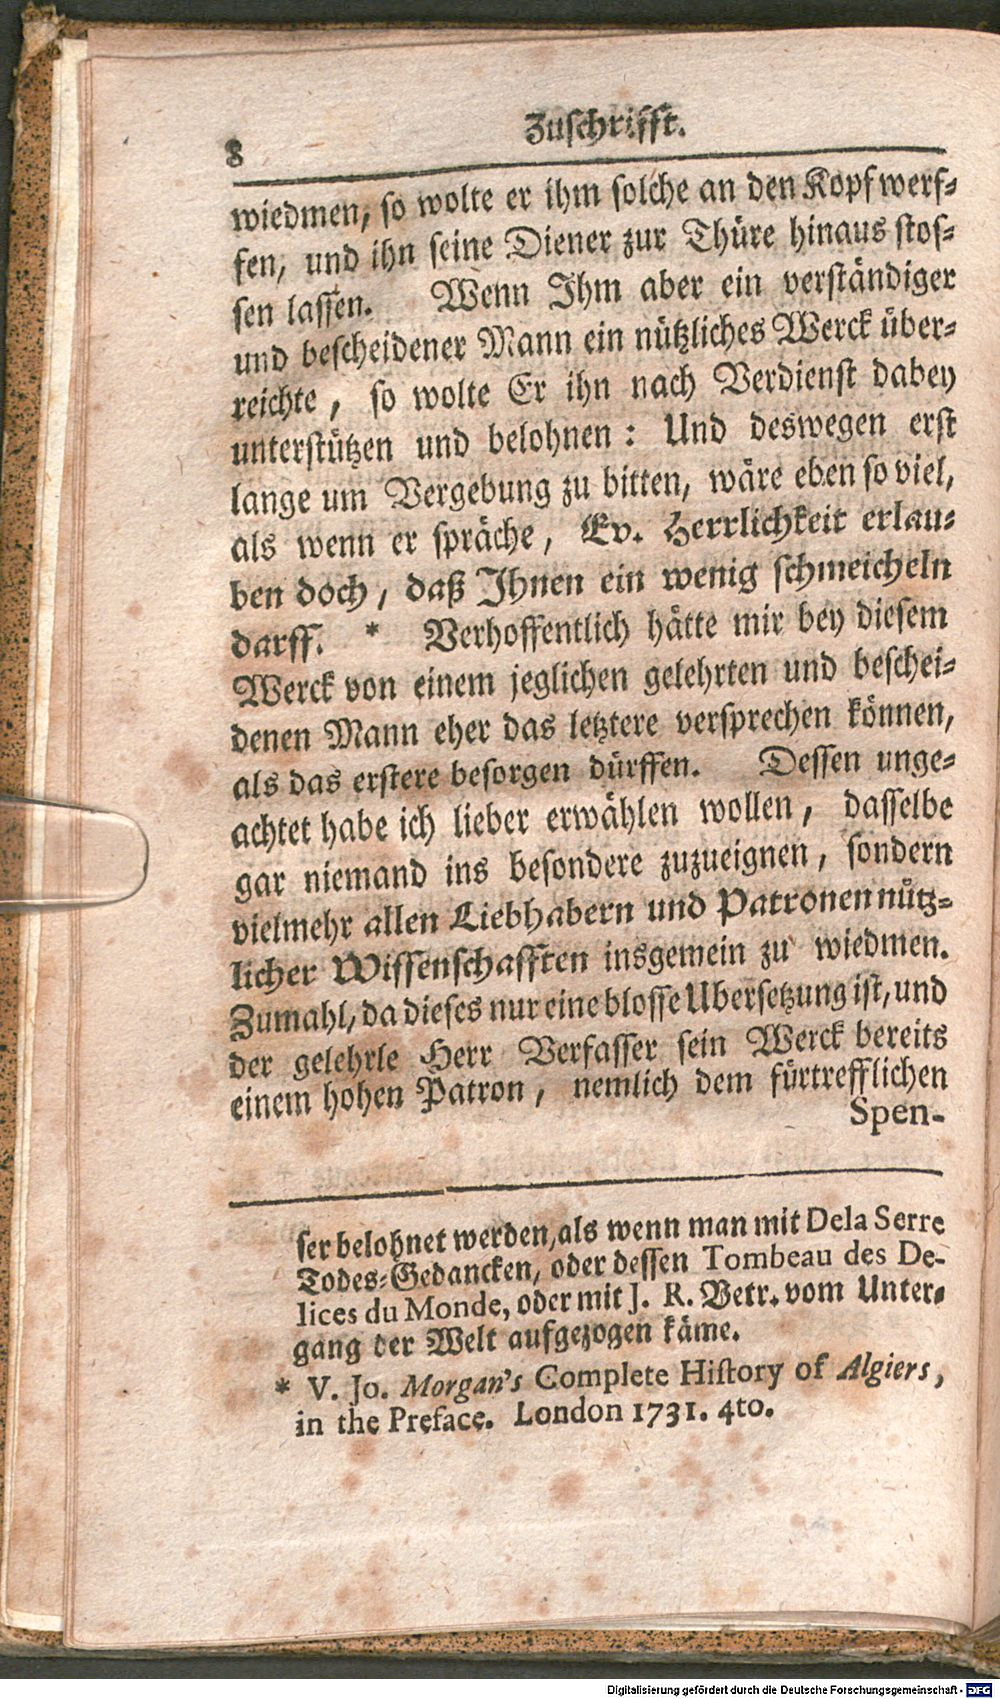 8
Zuschrifft.
wiedmen, so wolte er ihm solche an den Kopf werf-
fen, und ihn seine Diener zur Thüre hinaus stos-
sen lassen. Wenn Ihm aber ein verständiger
und bescheidener Mann ein nützliches Werck über-
reichte, so wolte Er ihn nach Verdienst dabey
unterstützen und belohnen: Und deswegen erst
lange um Vergebung zu bitten, wäre eben so viel,
als wenn er spräche, Ev. Herrlichkeit erlau-
ben doch, daß Ihnen ein wenig schmeicheln
darff. * Verhoffentlich hätte mir bey diesem
Werck von einem jeglichen gelehrten und beschei-
denen Mann eher das letztere versprechen können,
als das erstere besorgen dürffen. Dessen unge-
achtet habe ich lieber erwählen wollen, dasselbe
gar niemand ins besondere zuzueignen, sondern
vielmehr allen Liebhabern und Patronen nütz-
licher Wissenschafften insgemein zu wiedmen.
Zumahl, da dieses nur eine blosse Ubersetzung ist, und
der gelehrle Herr Verfasser sein Werck bereits
einem hohen Patron, nemlich dem fürtrefflichen
Spen-
ser belohnet werden, als wenn man mit Dela Serre
Todes-Gedancken, oder dessen Tombeau des De-
lices du Monde, oder mit J. R. Vetr. vom Unter-
gang der Welt aufgezogen käme.
* V. Jo. Morgan's Complete History of Algiers,
in the Preface. London 1731. 4to.
Digitalisierung gefördert durch die Deutsche Forschungsgemeinschaft - DFG